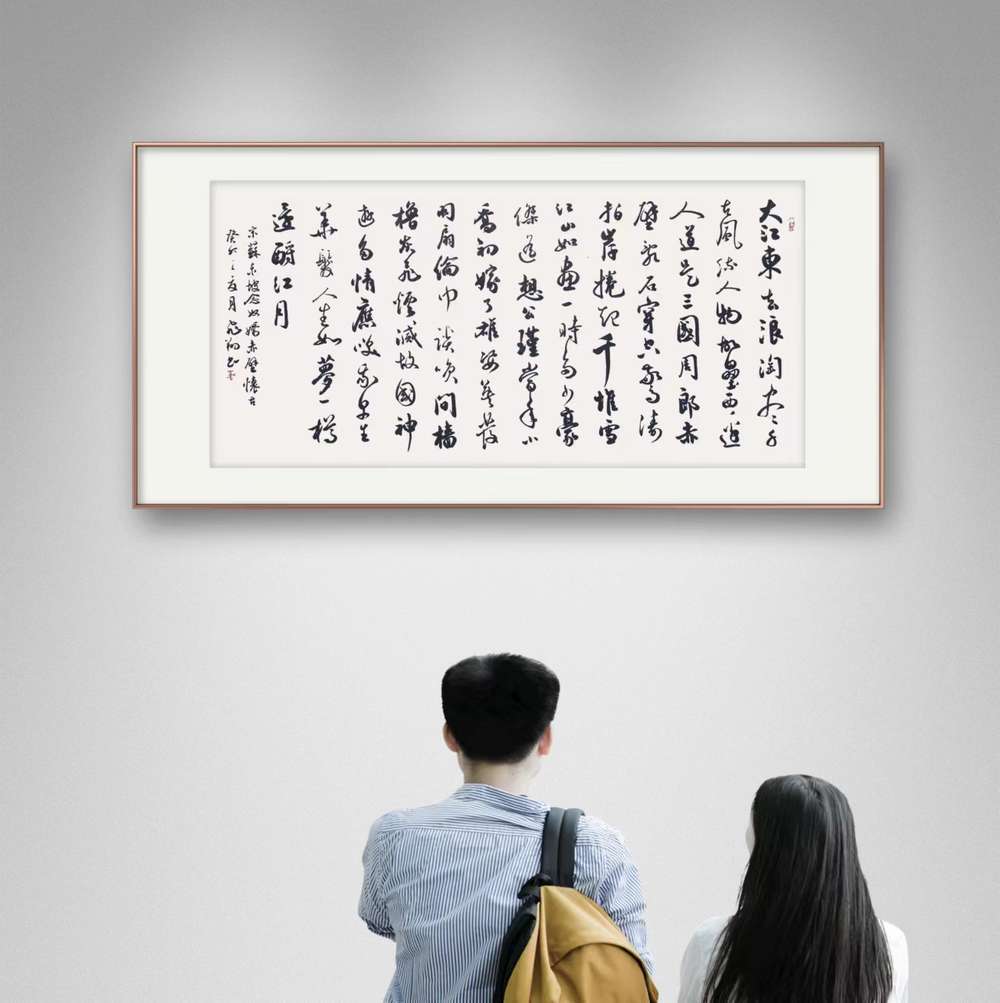 大江東去浪淘尽千
古風流人物故壘西邊
人道是三國周郎赤
壁乱石穿空驚濤
拍岸捲起千堆雪
江山如畫一時多少豪
傑遥想公瑾當年小
喬初嫁了雄姿英發
羽扇綸巾談笑間檣
櫓灰飛煙滅故國神
遊多情應笑我早生
華髮人生如夢一樽
還酹江月
宋蘇東坡念奴嬌赤壁懷古
癸卯之夏月